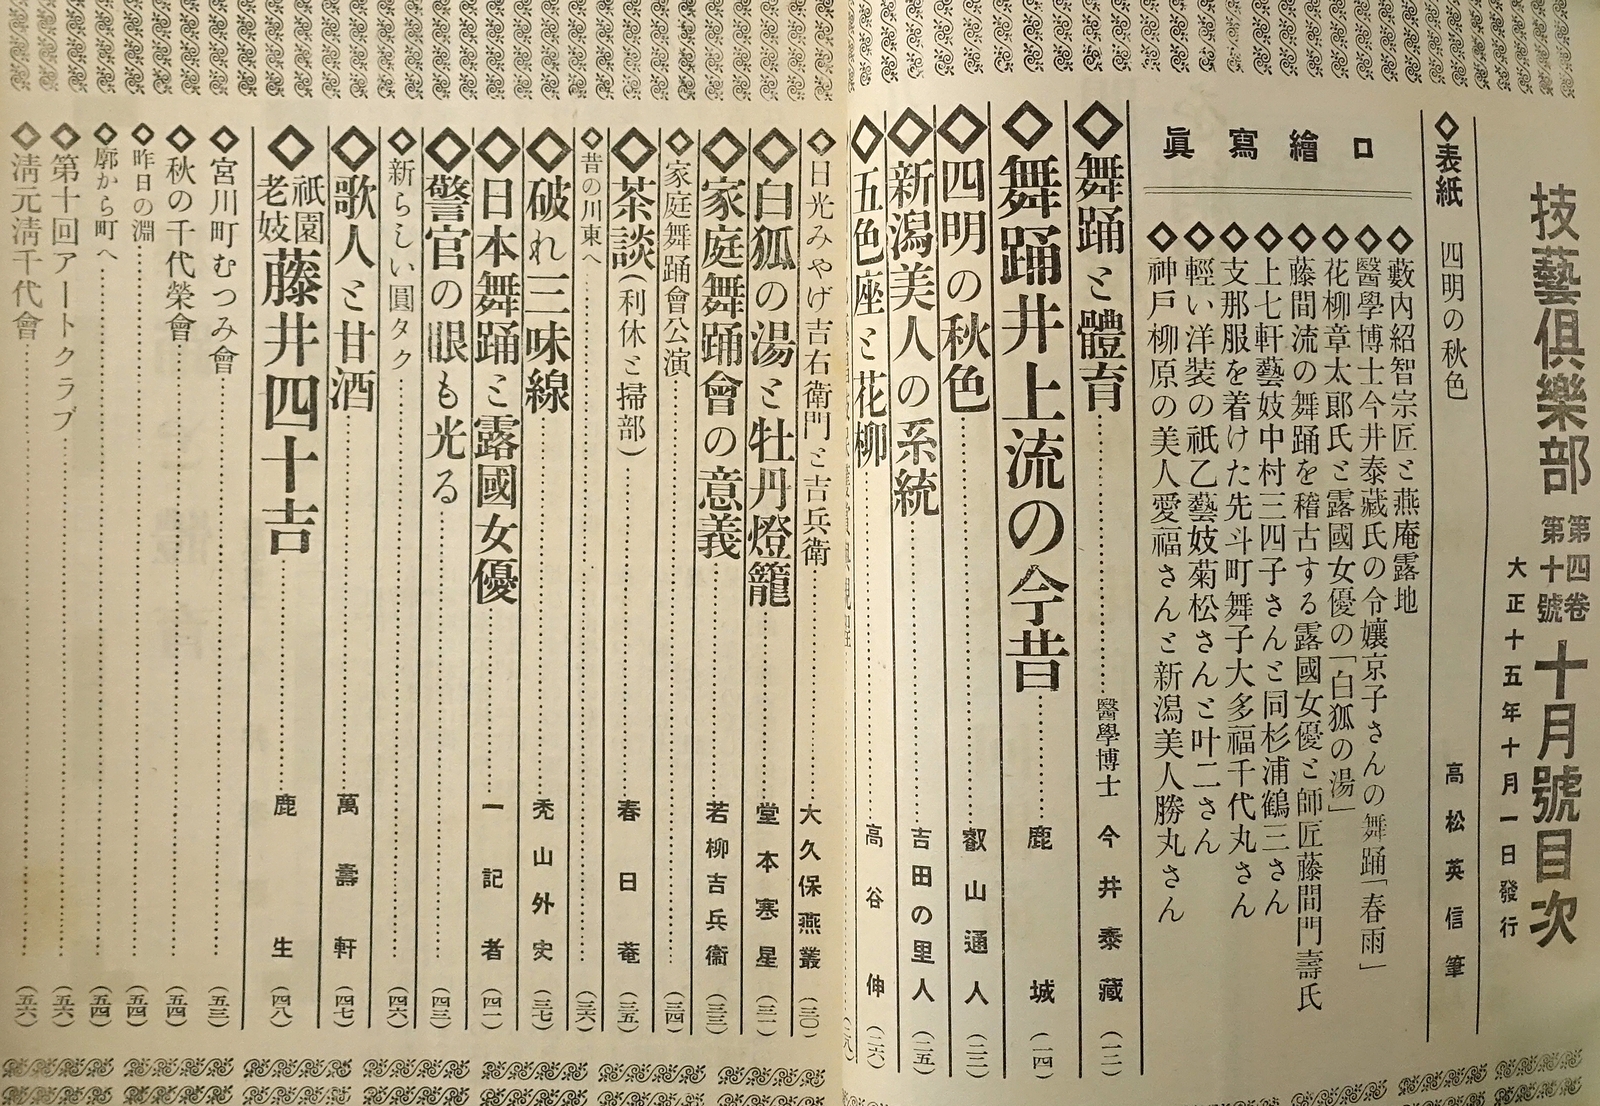 技藝俱樂部 第四卷 第十號 十月號目次
大正十五年十月一日發行
◇表紙 四明の秋色 高松英信筆
口繪寫眞
◇藪內紹智宗匠と燕庵露地
◇醫學博士今井泰藏氏の令孃京子さんの舞踊「春雨」
◇花柳章太郞氏と露國女優の「白狐の湯」
◇藤間流の舞踊を稽古する露國女優と師匠藤間門壽氏
◇上七軒藝妓中村三四子さんと同杉浦鶴三さん
◇支那服を着けた先斗町舞子大多福千代丸さん
◇輕い洋裝の祇乙藝妓菊松さんと叶二さん
◇神戶柳原の美人愛福さんと新潟美人勝丸さん
◇舞踊と體育 醫學博士 今井泰藏 (一二)
◇舞踊井上流の今昔 鹿城 (一四)
◇四明の秋色 叡山通人 (二二)
◇新潟美人の系統 吉田の里人 (二五)
◇五色座と花柳 高谷伸 (二六)
◇日光みやげ吉右衛門と吉兵衛 大久保燕叢 (三〇)
◇白狐の湯と牡丹燈籠 堂本寒星 (三一)
◇家庭舞踊會の意義 若柳吉兵衞 (三三)
◇家庭舞踊會公演 (三四)
◇茶談(利休と掃部) 春日菴 (三五)
◇昔の川東へ (三六)
◇破れ三味線 禿山外史 (三七)
◇日本舞踊と露國女優 一記者 (四一)
◇警官の眼も光る (四三)
◇新らしい圓タク (四六)
◇歌人と甘酒 萬壽軒 (四七)
◇祇園老妓 藤井四十吉 鹿生 (四八)
◇宮川町むつみ會 (五三)
◇秋の千代榮會 (五四)
◇昨日の淵 (五四)
◇廓から町へ (五四)
◇第十回アートクラブ (五六)
◇淸元淸千代會 (五六)